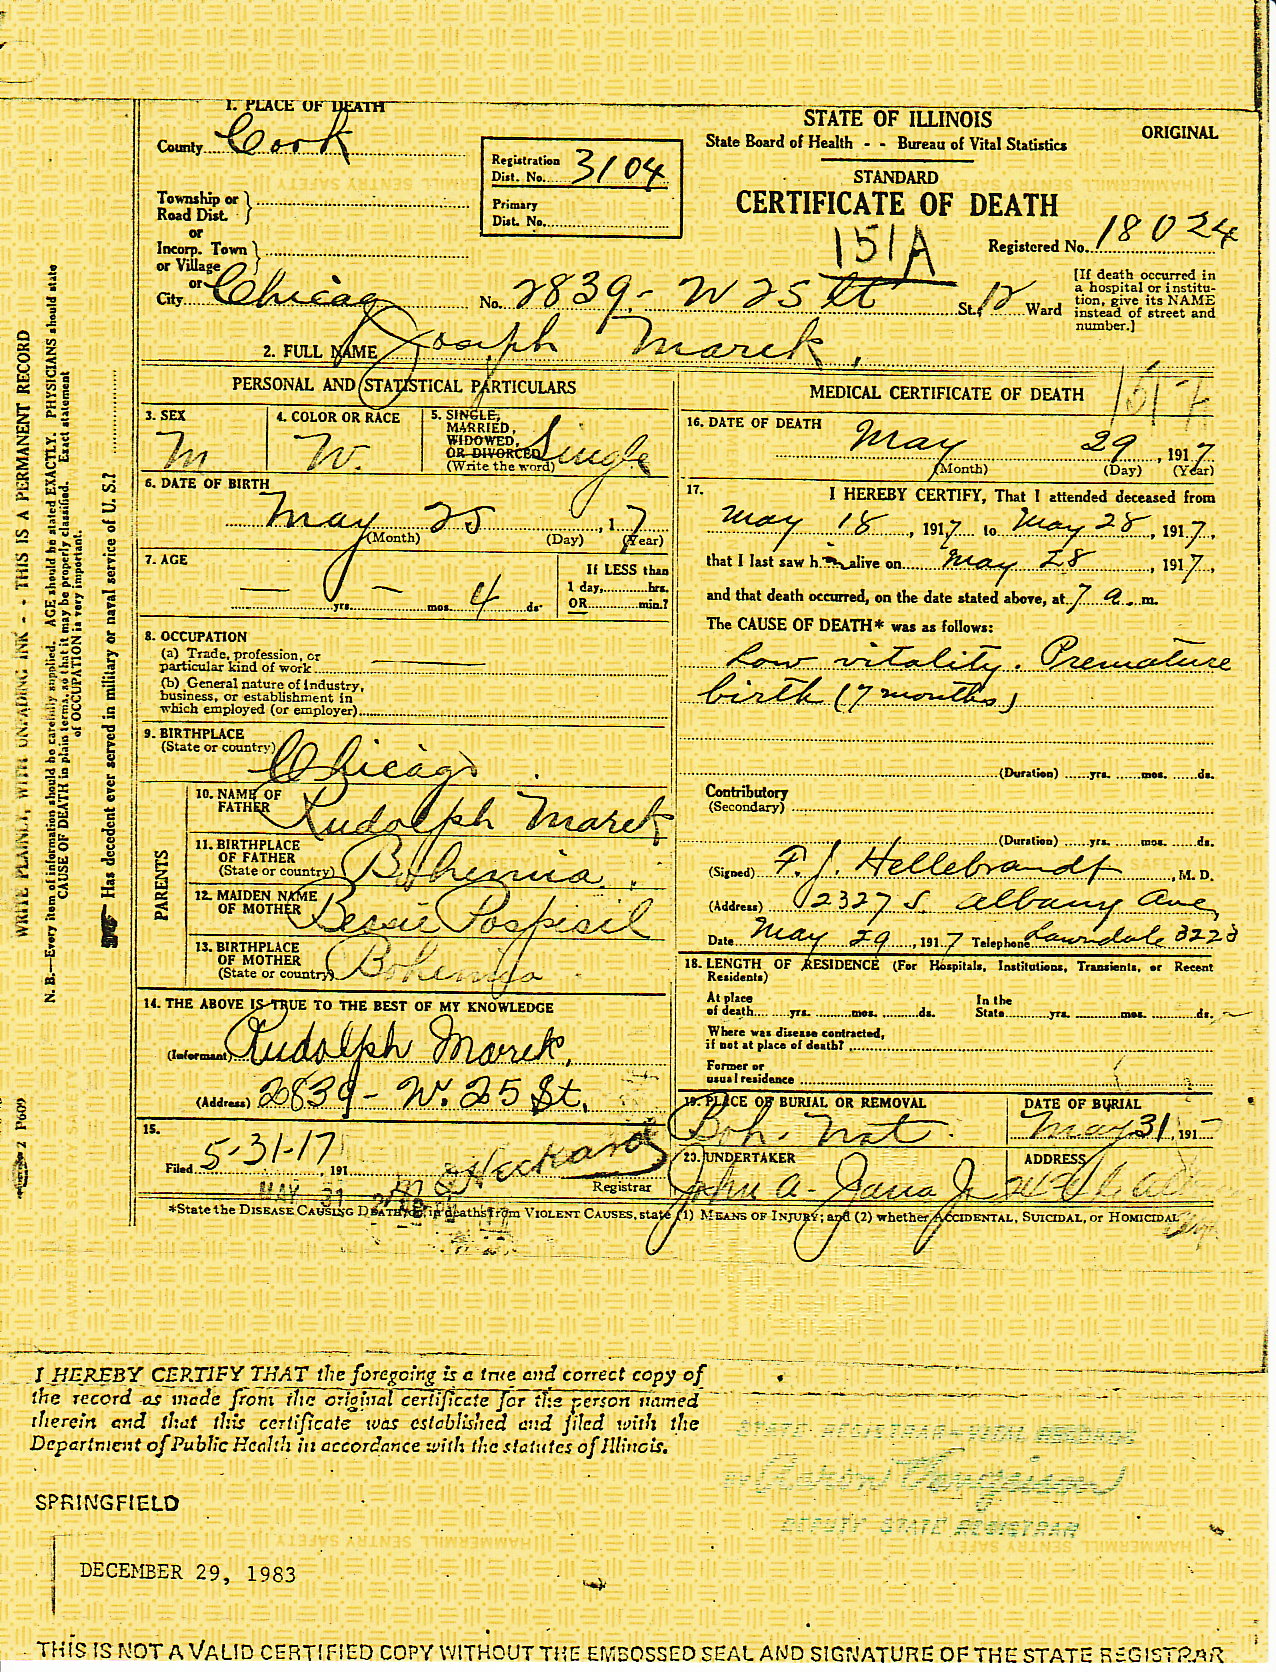 1. PLACE OF DEATH
County Cook
Registration Dist. No. 3104
Primary Dist. No.
Township or Road Dist.
or
Incorp. Town or Village
or
City Chicago No. 2839 - W 25 St St. 12 Ward
STATE OF ILLINOIS
State Board of Health - - Bureau of Vital Statistics
ORIGINAL
STANDARD
CERTIFICATE OF DEATH
151A
Registered No. 18024
[If death occurred in
a hospital or institu-
tion, give its NAME
instead of street and
number.]
2. FULL NAME Joseph Marek.
PERSONAL AND STATISTICAL PARTICULARS
3. SEX
M
4. COLOR OR RACE
W.
5. SINGLE,
MARRIED,
WIDOWED,
OR DIVORCED
(Write the word)
Single
6. DATE OF BIRTH
May 25, 17
(Month) (Day) (Year)
7. AGE
— yrs. — mos. 4 ds.
If LESS than
1 day, hrs.
OR min.?
8. OCCUPATION
(a) Trade, profession, or
particular kind of work
(b) General nature of industry,
business, or establishment in
which employed (or employer)
9. BIRTHPLACE
(State or country) Chicago
PARENTS
10. NAME OF
FATHER Rudolph Marek
11. BIRTHPLACE
OF FATHER
(State or country) Bohemia
12. MAIDEN NAME
OF MOTHER Bessie Pospisil
13. BIRTHPLACE
OF MOTHER
(State or country) Bohemia
14. THE ABOVE IS TRUE TO THE BEST OF MY KNOWLEDGE
(Informant) Rudolph Marek,
(Address) 2839 - W. 25 St.
15.
Filed 5-31-17, 191
Registrar
MAY 31
MEDICAL CERTIFICATE OF DEATH
16. DATE OF DEATH
May 29, 1917
(Month) (Day) (Year)
17. I HEREBY CERTIFY, That I attended deceased from
May 18, 1917 to May 28, 1917,
that I last saw him alive on May 28, 1917,
and that death occurred, on the date stated above, at 7 a. m.
The CAUSE OF DEATH* was as follows:
Low vitality. Premature
birth (7 months)
(Duration) yrs. mos. ds.
Contributory
(Secondary)
(Duration) yrs. mos. ds.
(Signed) F. J. Hellebrandt, M. D.
(Address) 2327 S. Albany Ave,
Date May 29, 1917 Telephone Lawndale 3223
18. LENGTH OF RESIDENCE (For Hospitals, Institutions, Transients, or Recent
Residents)
At place
of death yrs. mos. ds.
In the
State yrs. mos. ds.
Where was disease contracted,
if not at place of death?
Former or
usual residence
19. PLACE OF BURIAL OR REMOVAL
Boh. Nat.
DATE OF BURIAL
May 31, 191
20. UNDERTAKER
John A.
ADDRESS
*State the DISEASE CAUSING DEATH, or, in deaths from VIOLENT CAUSES, state (1) MEANS OF INJURY; and (2) whether ACCIDENTAL, SUICIDAL, or HOMICIDAL
WRITE PLAINLY, WITH UNFADING INK - - THIS IS A PERMANENT RECORD
N. B.—Every item of information should be carefully supplied. AGE should be stated EXACTLY. PHYSICIANS should state
CAUSE OF DEATH in plain terms, so that it may be properly classified. Exact statement
of OCCUPATION is very important.
Has decedent ever served in military or naval service of U. S.?
I HEREBY CERTIFY THAT the foregoing is a true and correct copy of
the record as made from the original certificate for the person named
therein and that this certificate was established and filed with the
Department of Public Health in accordance with the statutes of Illinois.
STATE REGISTRAR - VITAL RECORDS
BY
DEPUTY STATE REGISTRAR
SPRINGFIELD
DECEMBER 29, 1983
THIS IS NOT A VALID CERTIFIED COPY WITHOUT THE EMBOSSED SEAL AND SIGNATURE OF THE STATE REGISTRAR